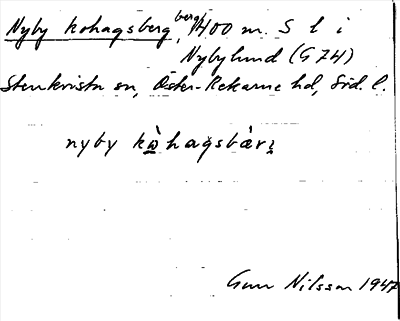 Nyby kohagsberg, berg, 1400 m. S l i
Nybylund (G 74)
Stenkvista sn, Öster-Rekarne hd, Söd. l.
nyby kò hagsbær
Gun Nilsson 1947